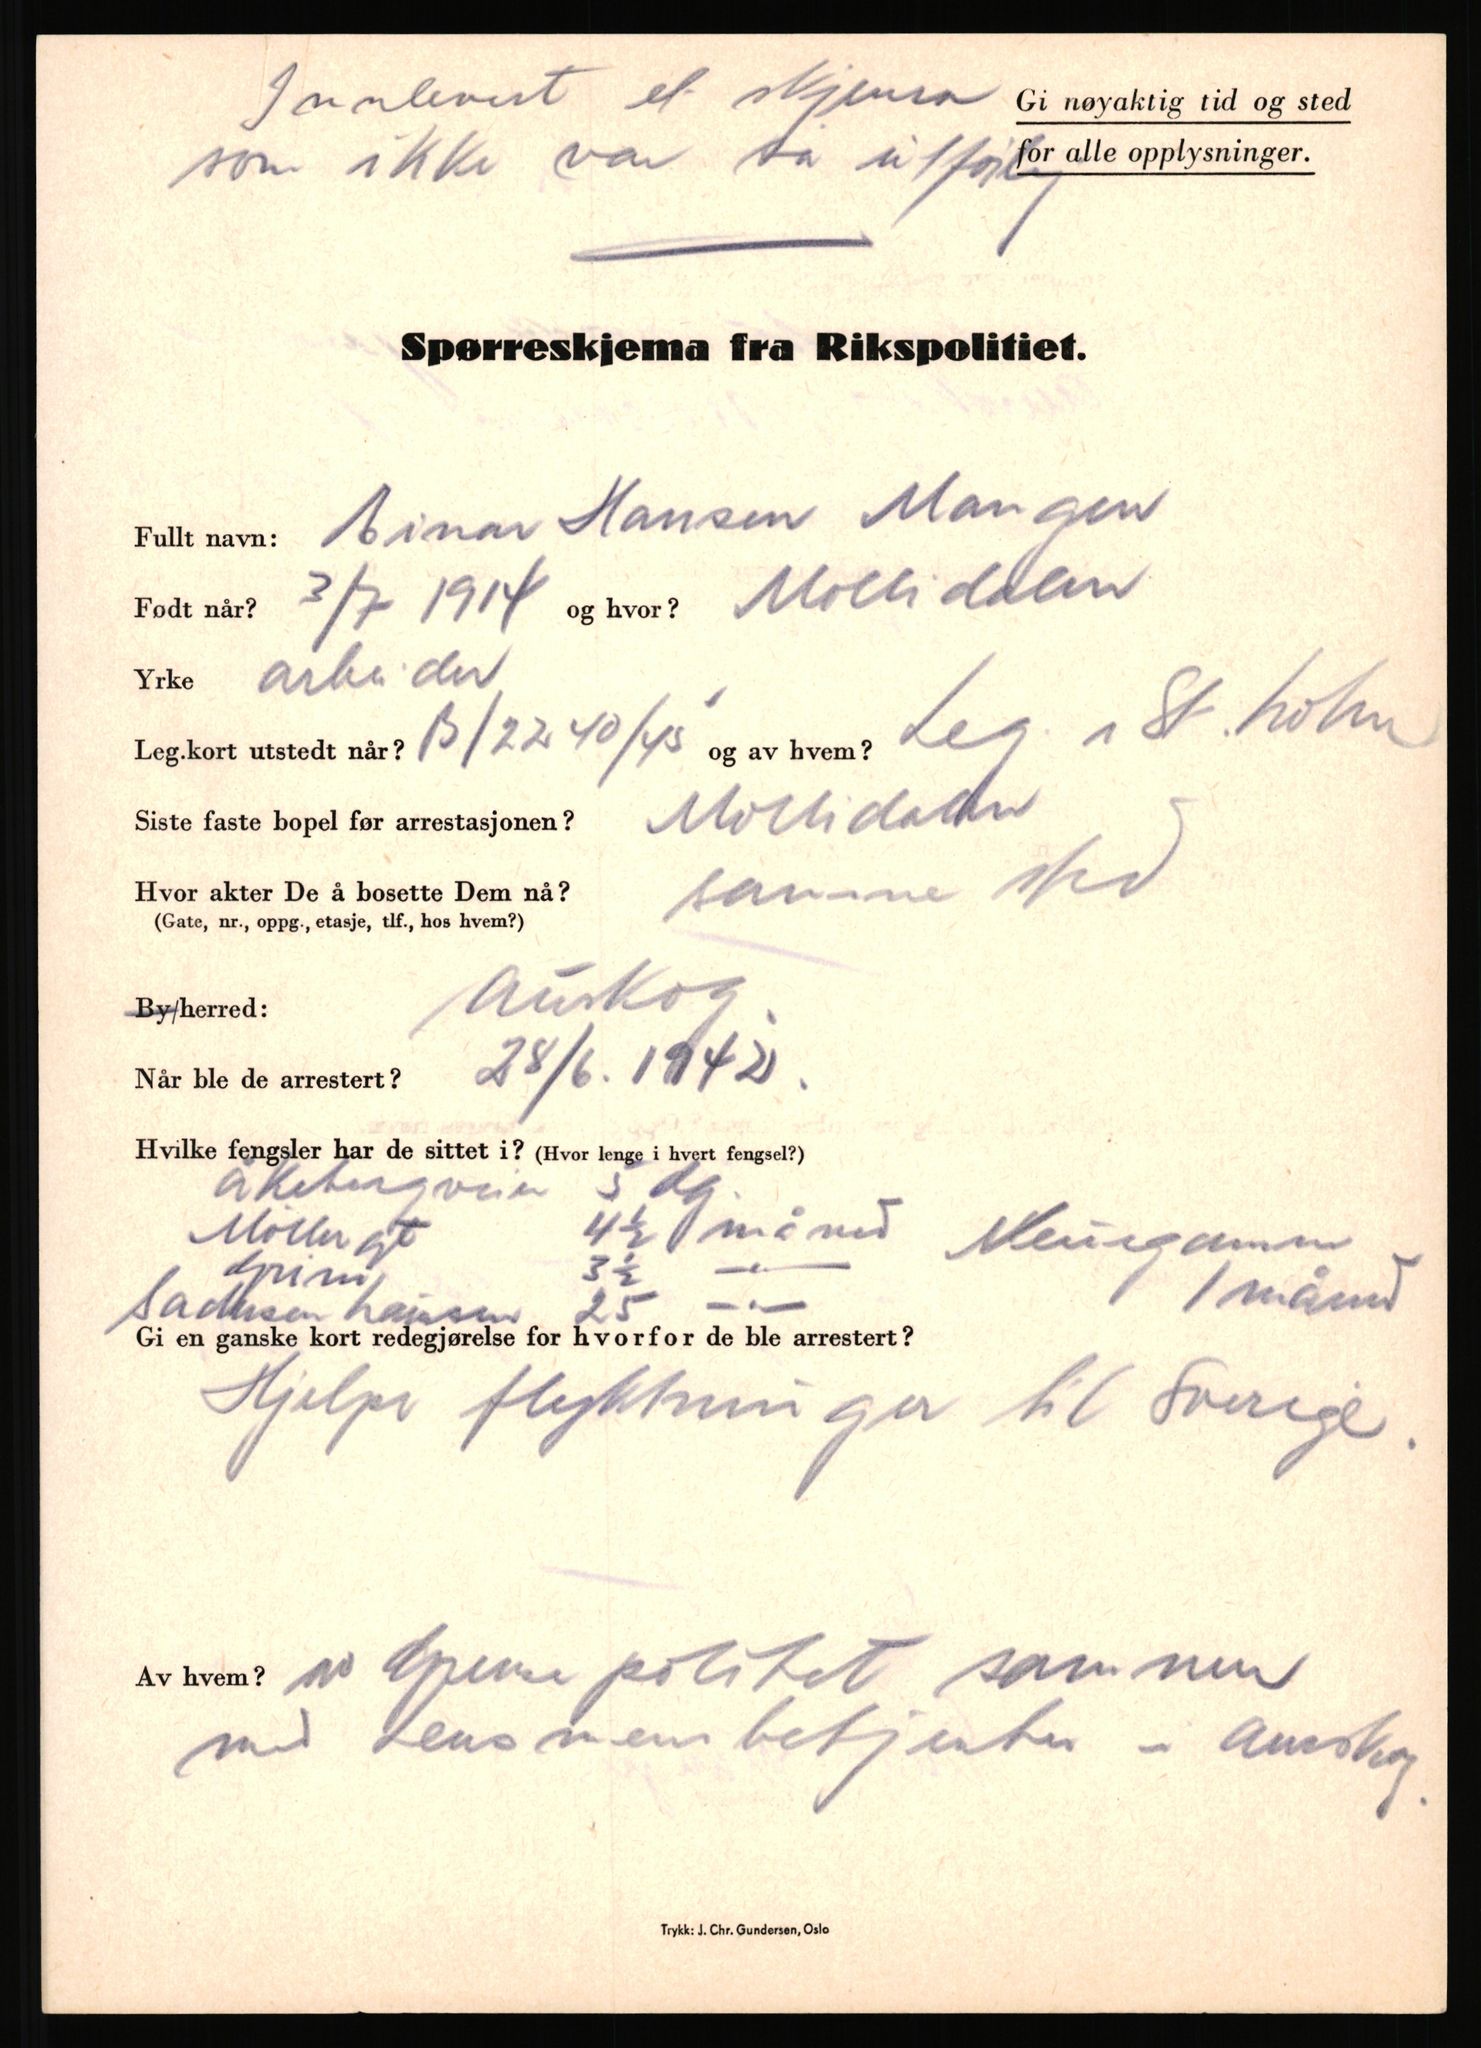 Innlevert et skjema
som ikke var så utførlig
Gi nøyaktig tid og sted
for alle opplysninger.
Spørreskjema fra Rikspolitiet.
Fullt navn: Einar Hansen Mangen
Født når? 3/7 1914 og hvor? Mollidalen
Yrke arbeider
Leg.kort utstedt når? B/2240/45 og av hvem? Leg. i St.holm
Siste faste bopel før arrestasjonen? Mollidalen
Hvor akter De å bosette Dem nå? samme sted
(Gate, nr., oppg., etasje, tlf., hos hvem?)
By/herred: Aurskog.
Når ble de arrestert? 28/6. 1942.
Hvilke fengsler har de sittet i? (Hvor lenge i hvert fengsel?)
Åkebergveien 5 dg.
Møllergt 4½ måned Neuegamme
Grini 3½ —"— 1 måned
Sachsenhausen 25 —"—
Gi en ganske kort redegjørelse for hvorfor de ble arrestert?
Hjelpe flyktninger til Sverige.
Av hvem? Grensepolitiet sammen
med Lensmensbetjenten i Aurskog.
Trykk: J. Chr. Gundersen, Oslo